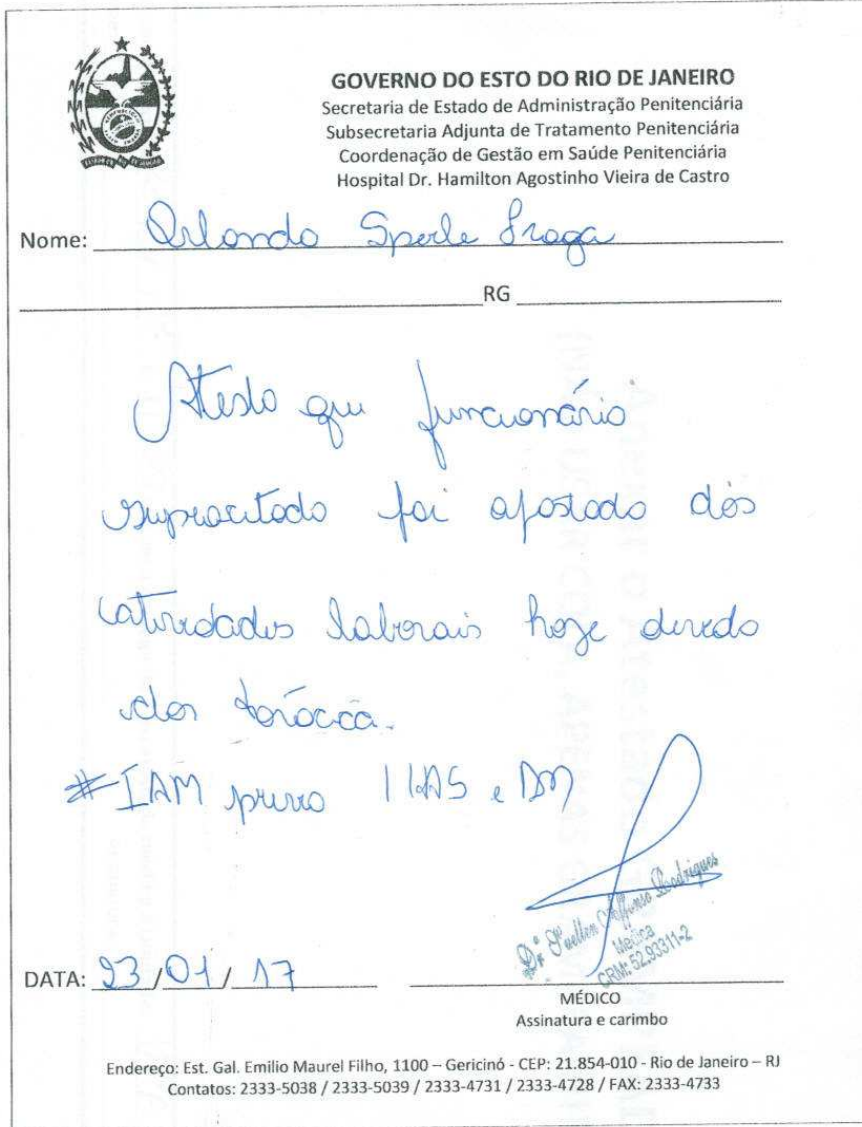 GOVERNO DO ESTO DO RIO DE JANEIRO
Secretaria de Estado de Administração Penitenciária
Subsecretaria Adjunta de Tratamento Penitenciária
Coordenação de Gestão em Saúde Penitenciária
Hospital Dr. Hamilton Agostinho Vieira de Castro
Nome: Orlando Sperle Fraga
RG
Atesto que funcionário
supracitado foi afastado das
atividades laborais hoje devido
dor torácica.
#IAM prévio HAS e DM
Drª Suellen Affonso Rodrigues
Médica
CRM: 52.93311-2
DATA: 23/01/17
MÉDICO
Assinatura e carimbo
Endereço: Est. Gal. Emilio Maurel Filho, 1100 – Gericinó - CEP: 21.854-010 - Rio de Janeiro – RJ
Contatos: 2333-5038 / 2333-5039 / 2333-4731 / 2333-4728 / FAX: 2333-4733